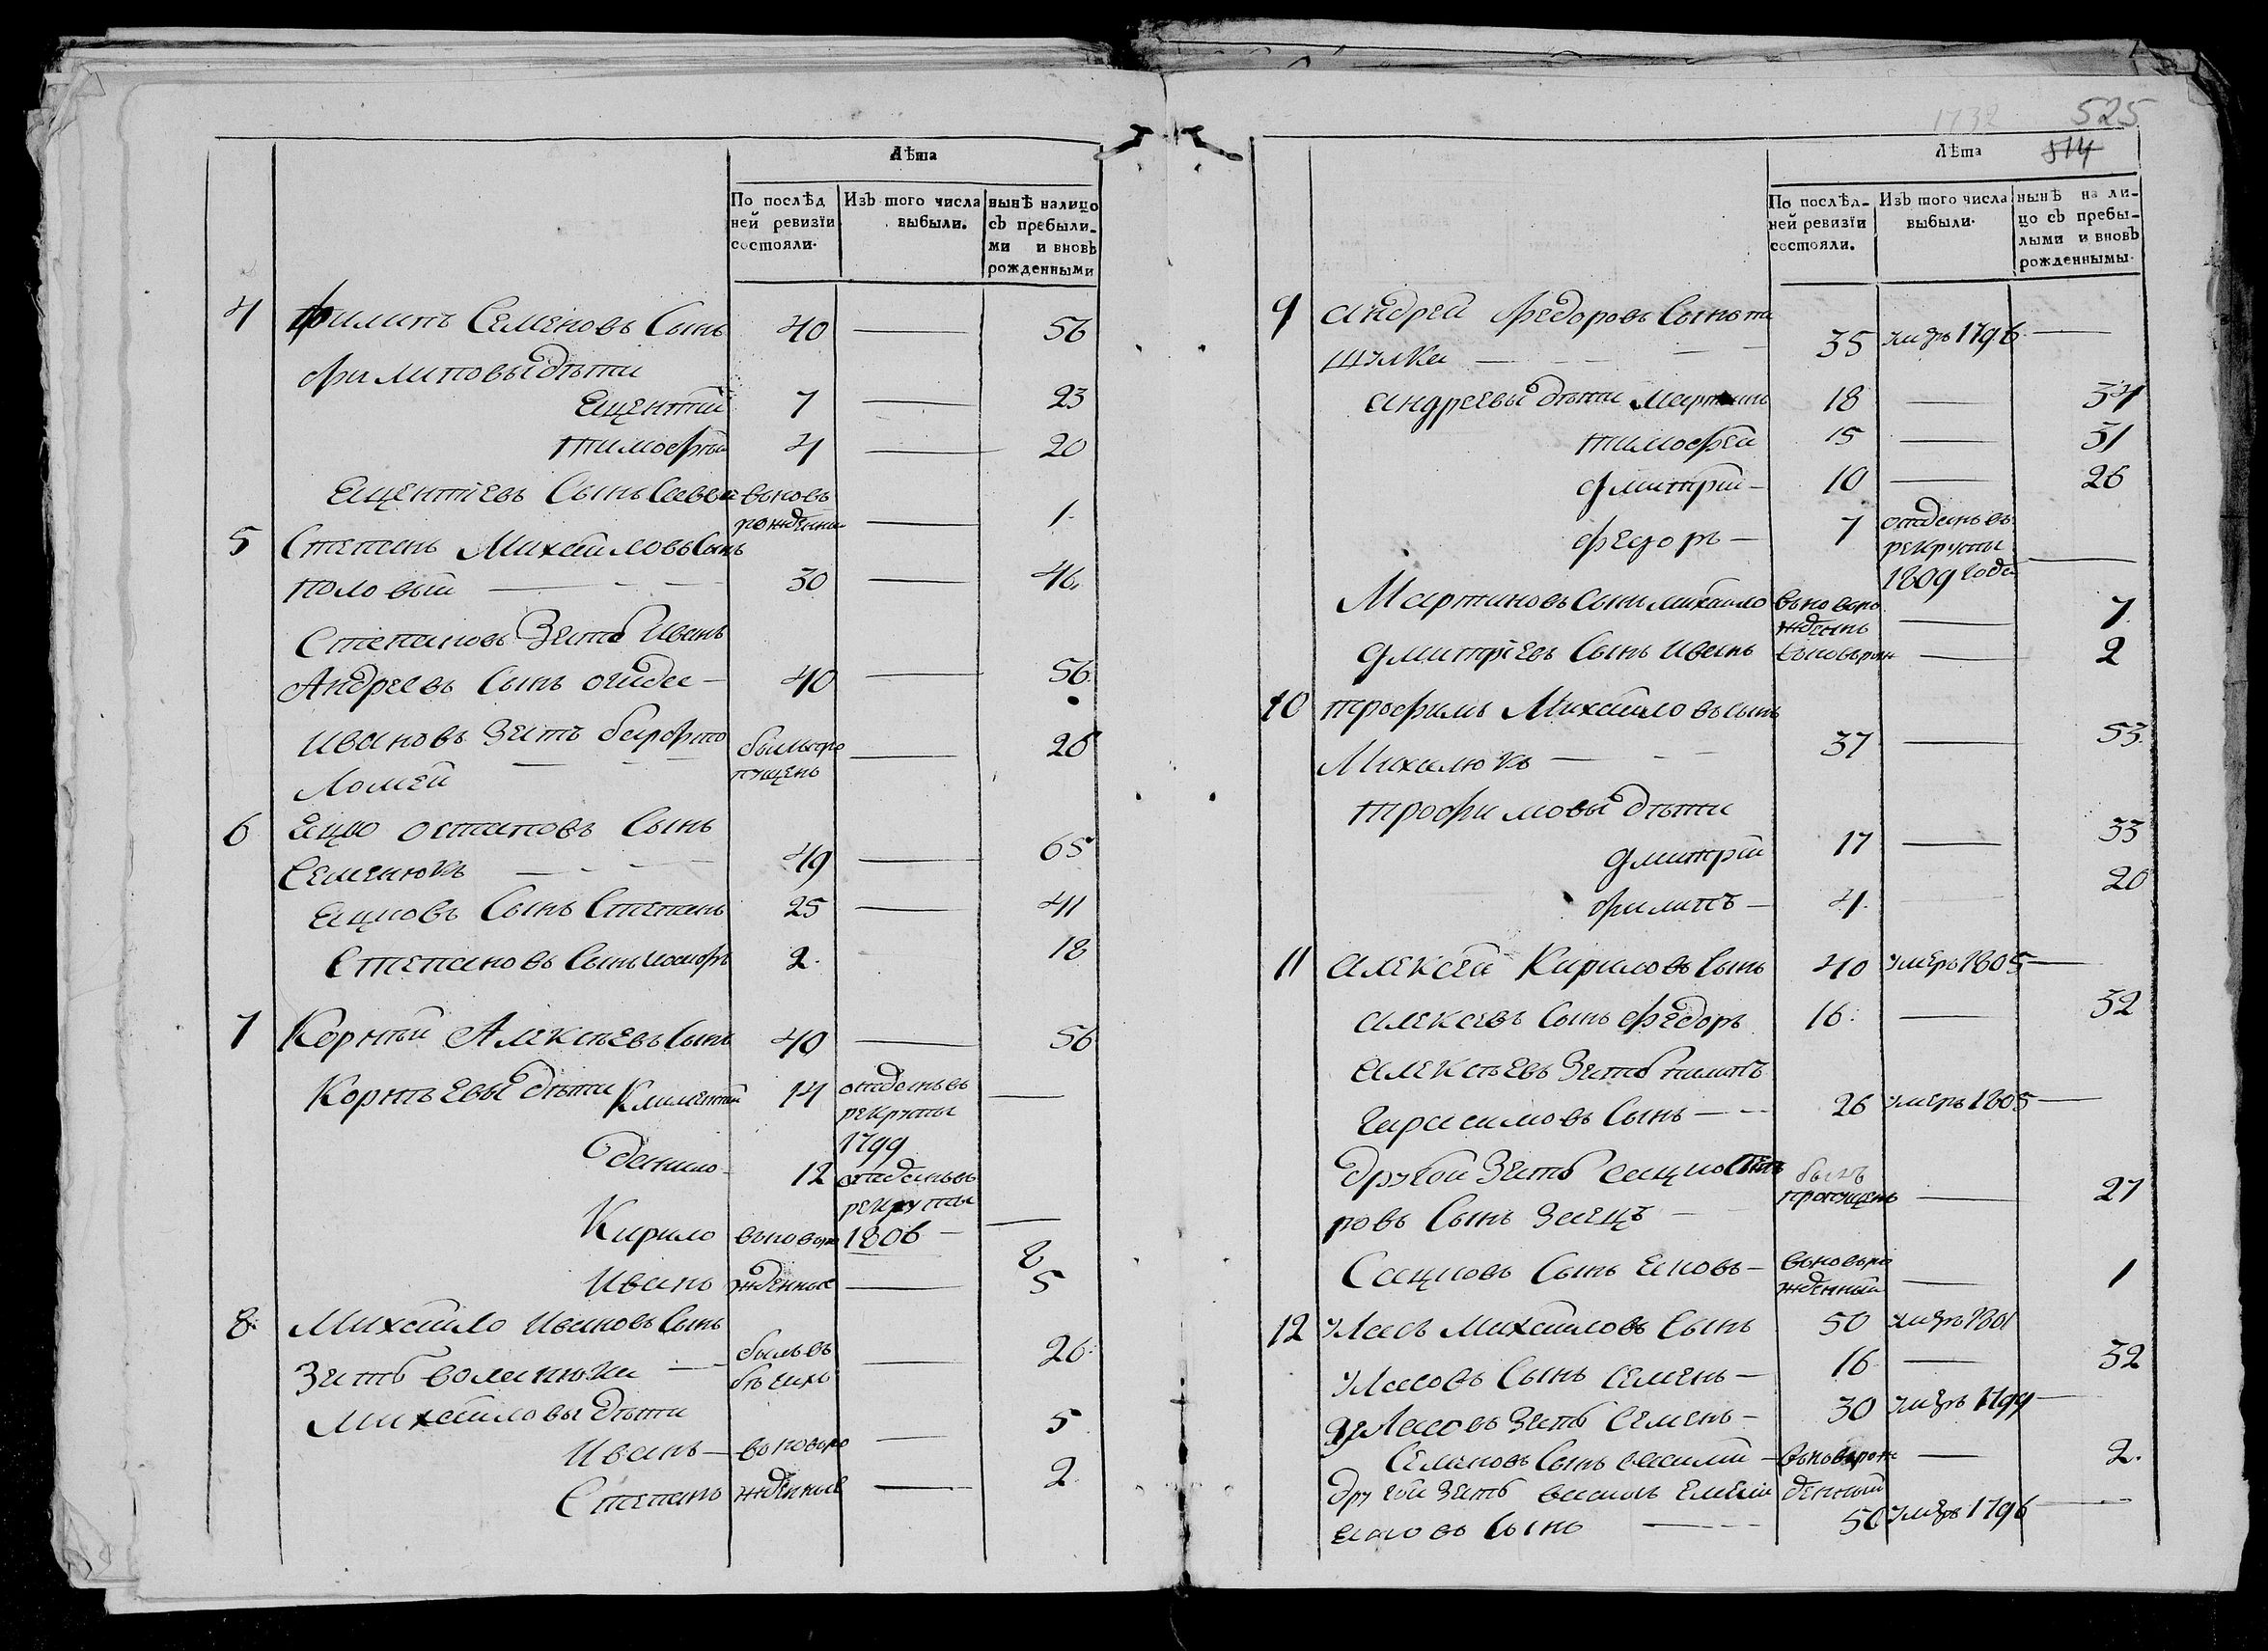 Лѣта
По послѣд
ней ревизїи
состояли.
Изъ того числа
выбыли.
нынѣ налицо
съ пребыли-
ми и вновь
рожденными
4 Филипъ Семеновъ Сынъ 40 — 56
Филиповы дѣти
7 — 23
Тимофѣй 4 — 20
Сынъ Савва вновь
рожденны — 1.
5 Степанъ Михайловъ Сынъ
половый — 30 — 46.
Степановъ Зять Иванъ
Андреевъ Сынъ — 40 — 56.
Ивановъ Зять Варфто былъ про — 26
ломей — пущенъ
6 Яцко остаповъ Сынъ
Семенюкъ — 49 — 65
Яцковъ Сынъ Степанъ 25 — 41
Степановъ Сынъ 2. 18
7 Корнѣй Алексѣевъ Сынъ 40 — 56
Корнѣевы дѣти Климентий 14 отданъ въ —
рекруты
1799
данило 12 отданъ въ
рекруты
Кирило вновь ро 1806 — 8
Иванъ жденные — 5
8. Михайло Ивановъ Сынъ
Зять — былъ въ — 26.
бѣгахъ
Михайловы дѣти
Иванъ — вновь ро — 5
Степанъ жденные — 2
1732 525
514
Лѣта
По послѣд-
ней ревизїи
состояли.
Изъ того числа
выбыли.
нынѣ на ли-
цо съ пребы-
лыми и вновь
рожденнымы.
9 андрей Федоровъ Сынъ пи
щулка — 35 умеръ 1796 —
андреевы дѣти Мартинъ 18 — 34
тимофей 15 — 31
дмитрій — 10 — 26
Федоръ — 7 отданъ въ
рекруты
1809 года —
Мартиновъ Сынъ михайло вновь ро — 7.
жденъ
дмитріевъ Сынъ иванъ вновь рож — 2
10 трофимъ Михайловъ сынъ
Михалюкъ — 37 — 53.
трофимовы дѣти
дмитрій 17 — 33
филипъ — 4. 20
11 алексей Кириловъ Сынъ 40 умеръ 1805 —
алексевъ Сынъ Федоръ 16. — 32
алексѣевъ Зять пилипъ
гарасимовъ Сынъ — 26 умеръ 1805 —
другой Зять сацко былъ
пропущенъ — 27
ровъ Сынъ Заецъ —
Сацковъ Сынъ яковъ — вновь ро
жденный — 1
12 Уласъ Михайловъ Сынъ 50 умеръ 1801
Уласовъ Сынъ семенъ — 16 — 32
Уласовъ Зять Семенъ — 30 умеръ 1799 —
Семеновъ Сынъ василий — вновь рож — 2.
другой Зять василь денный
Сынъ — 50 умеръ 1796 —